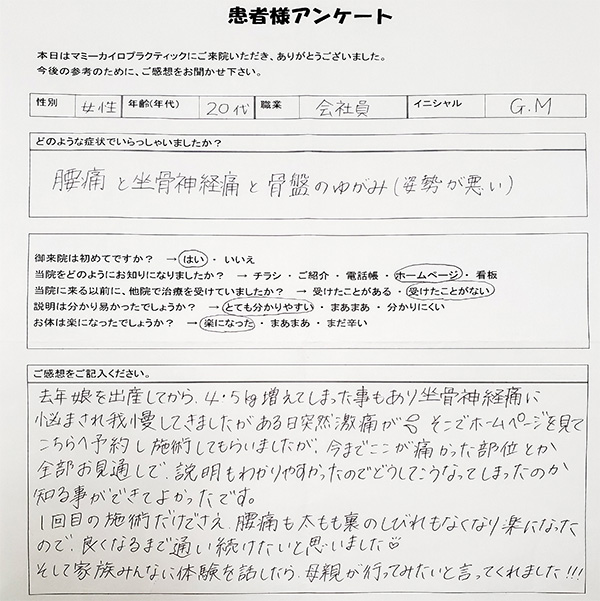 患者様アンケート
本日はマミーカイロプラクティックにご来院いただき、ありがとうございました。
今後の参考のために、ご感想をお聞かせ下さい。
性別 女性 年齢(年代) 20代 職業 会社員 イニシャル G.M
どのような症状でいらっしゃいましたか？
腰痛と坐骨神経痛と骨盤のゆがみ(姿勢が悪い)
御来院は初めてですか？ →はい・いいえ
当院をどのようにお知りになりましたか？ →チラシ・ご紹介・電話帳・ホームページ・看板
当院に来る以前に、他院で治療を受けていましたか？ →受けたことがある・受けたことがない
説明は分かり易かったでしょうか？ →とても分かりやすい・まあまあ・分かりにくい
お体は楽になったでしょうか？ →楽になった・まあまあ・まだ辛い
ご感想をご記入ください。
去年娘を出産してから、4・5kg増えてしまった事もあり坐骨神経痛に
悩まされ我慢してきましたがある日突然激痛が そこでホームページを見て
こちらへ予約し施術してもらいましたが、今までここが痛かった部位とか
全部お見通しで、説明もわかりやすかったのでどうしてこうなってしまったのか
知る事ができてよかったです。
1回目の施術だけでさえ、腰痛も太もも裏のしびれもなくなり楽になった
ので、良くなるまで通い続けたいと思いました♡
そして家族みんなに体験を話したら、母親が行ってみたいと言ってくれました!!!